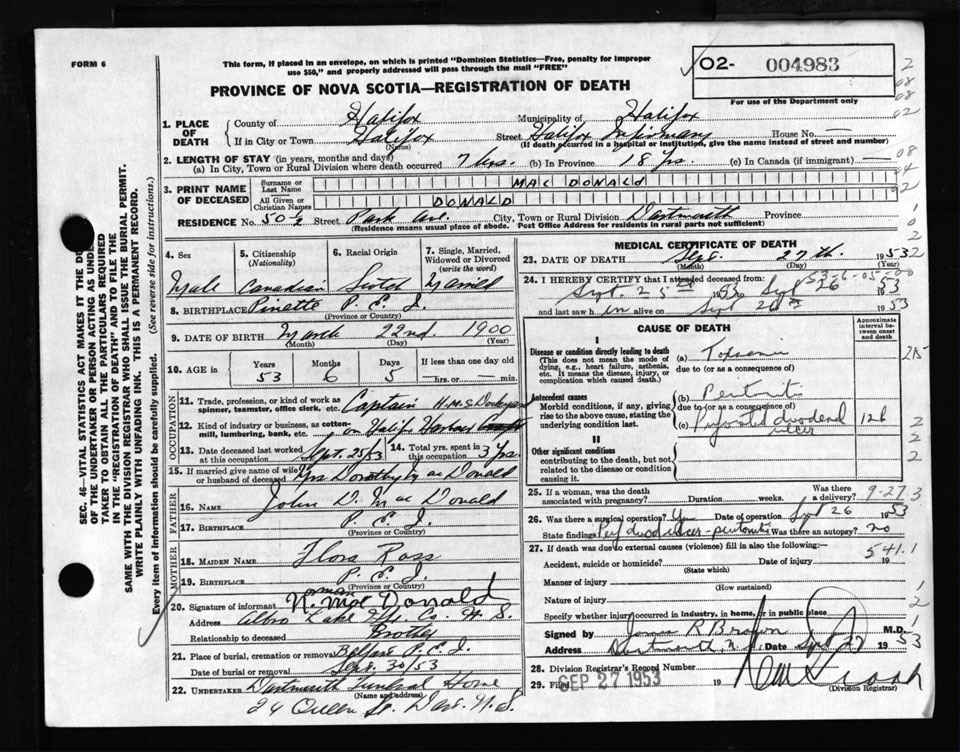 FORM 6
This form, if placed in an envelope, on which is printed "Dominion Statistics—Free, penalty for improper
use $50," and properly addressed will pass through the mail "FREE"
O2- 004983
For use of the Department only
PROVINCE OF NOVA SCOTIA—REGISTRATION OF DEATH
1. PLACE OF DEATH
County of Halifax Municipality of Halifax
If in City or Town Halifax Street Halifax Infirmary House No. —
(Name) (If death occurred in a hospital or institution, give the name instead of street and number)
2. LENGTH OF STAY (in years, months and days)
(a) In City, Town or Rural Division where death occurred 7 hrs. (b) In Province 18 Yrs. (c) In Canada (if immigrant) —
3. PRINT NAME OF DECEASED
Surname or Last Name MAC DONALD
All Given or Christian Names DONALD
RESIDENCE No. 50½ Street Park Ave. City, Town or Rural Division Dartmouth Province
(Residence means usual place of abode. Post Office Address for residents in rural parts not sufficient)
4. Sex
Male
5. Citizenship (Nationality)
Canadian
6. Racial Origin
Scotch
7. Single, Married, Widowed or Divorced (write the word)
Married
8. BIRTHPLACE Pinette P.E.I.
(Province or Country)
9. DATE OF BIRTH March 22nd 1900
(Month) (Day) (Year)
10. AGE in Years Months Days If less than one day old
53 6 5 — hrs. or — min.
OCCUPATION
11. Trade, profession or kind of work as spinner, teamster, office clerk, etc. Captain H.M.C. Dockyard
12. Kind of industry or business, as cotton-mill, lumbering, bank, etc. on Halifax Harbour
13. Date deceased last worked at this occupation Sept. 25/53
14. Total yrs. spent in this occupation 3 Yrs.
15. If married give name of wife or husband of deceased Mrs Dorothy Mac Donald
FATHER
16. NAME John D. Mac Donald
17. BIRTHPLACE P.E.I.
MOTHER
18. MAIDEN NAME Flora Ross
19. BIRTHPLACE P.E.I.
(Province or Country)
20. Signature of informant Norman Mac Donald
Address Albro Lake Hfx. Co. N.S.
Relationship to deceased Brother
21. Place of burial, cremation or removal Belfast P.E.I.
Date of burial or removal Sept. 30/53
22. UNDERTAKER Dartmouth Funeral Home
(Name and address)
24 Queen St. Dart. N.S.
MEDICAL CERTIFICATE OF DEATH
23. DATE OF DEATH Sept. 27th. 1953
(Month) (Day) (Year)
24. I HEREBY CERTIFY that I attended deceased from:
Sept. 25th 1953 to Sept 26 1953
and last saw him alive on Sept 26th 1953
CAUSE OF DEATH
Approximate interval between onset and death
I
Disease or condition directly leading to death
(This does not mean the mode of dying, e.g., heart failure, asthenia, etc. It means the disease, injury, or complication which caused death.)
(a) Toxaemia
due to (or as a consequence of)
Antecedent causes
Morbid conditions, if any, giving rise to the above cause, stating the underlying condition last.
(b) Peritonitis
due to (or as a consequence of)
(c) Perforated duodenal ulcer
II
Other significant conditions
contributing to the death, but not related to the disease or condition causing it.
25. If a woman, was the death associated with pregnancy? Duration weeks. Was there a delivery?
26. Was there a surgical operation? Yes Date of operation Sept 26 1953
State findings Perf duod ulcer - peritonitis Was there an autopsy? no
27. If death was due to external causes (violence) fill in also the following:—
541.1
Accident, suicide or homicide? Date 19
(State which)
Manner of injury
(How sustained)
Nature of injury
Specify whether injury occurred in industry, in home, or in public place
Signed by James R Brown M.D.
Address Dartmouth, N.S. Date Sept 27 1953
28. Division Registrar's Record Number
29. Filed SEP 27 1953 19
(Division Registrar)
SEC. 46—VITAL STATISTICS ACT MAKES IT THE
OF THE UNDERTAKER OR PERSON ACTING AS
TAKER TO OBTAIN ALL THE PARTICULARS REQUIRED
IN THE "REGISTRATION OF DEATH" AND TO FILE THE
SAME WITH THE DIVISION REGISTRAR WHO SHALL ISSUE THE BURIAL PERMIT.
WRITE PLAINLY WITH UNFADING INK. THIS IS A PERMANENT RECORD.
Every item of information should be carefully supplied. (See reverse side for instructions.)